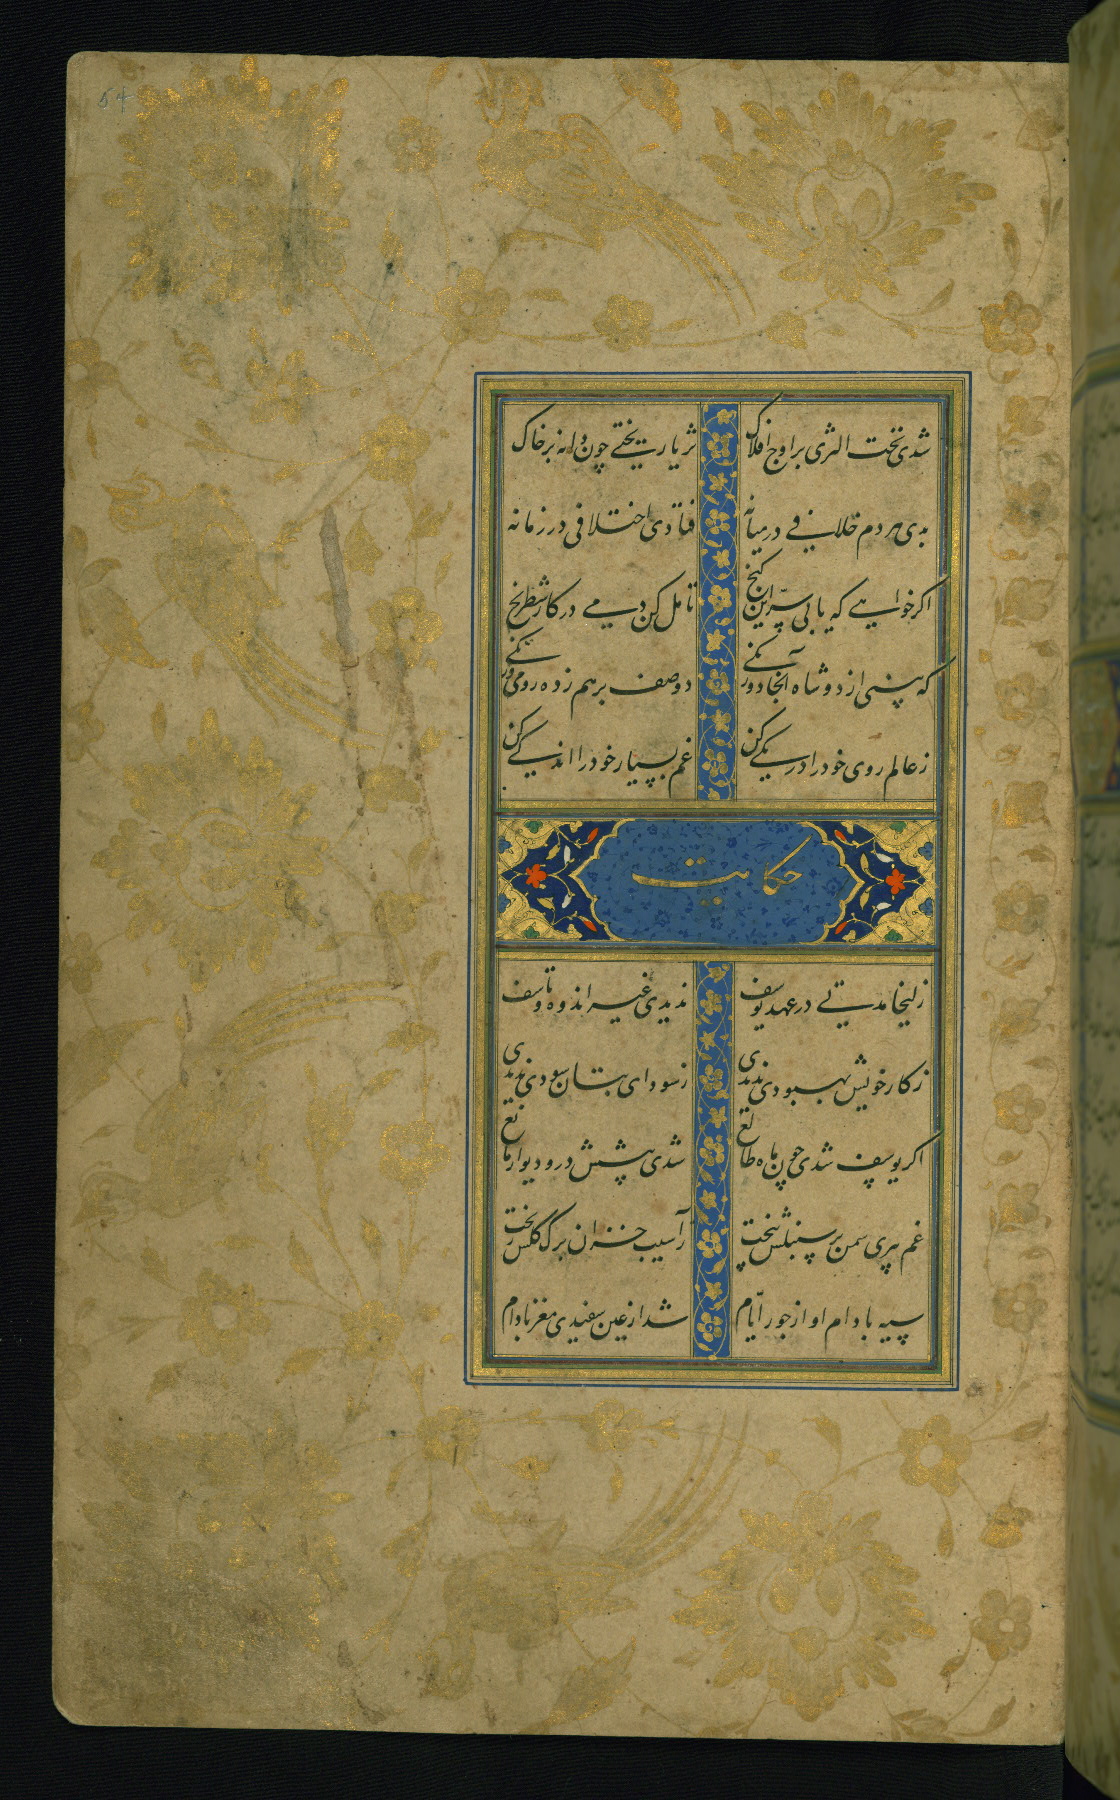 54
شدی تحت الثری بر اوج افلاک ثریا ریختی چون دانه بر خاک
بدی هر دم خلافی در میانه فتادی اختلافی در زمانه
اگر خواهی که یابی سرّ این گنج تامل کن دمی در کار شطرنج
که بینی از دو شاه آنجا دورنکی دو صف بر هم زده رومی و زنکی
ز عالم روی خود را در یکی کن غم بسیار خود را اندکی کن
حکایت
زلیخا مدتی در عهد یوسف ندیدی غیر اندوه و تاسف
ز کار خویش بهبودی ندیدی ز سودای بتان سودی ندیدی
اگر یوسف شدی چون ماه طالع شدی پیشش در و دیوار مانع
غم پیری سمن بر سنبلش پخت ز آسیب خزان برگ گلش ریخت
سیه بادام او از جور ایّام شد از عین سفیدی مغز بادام